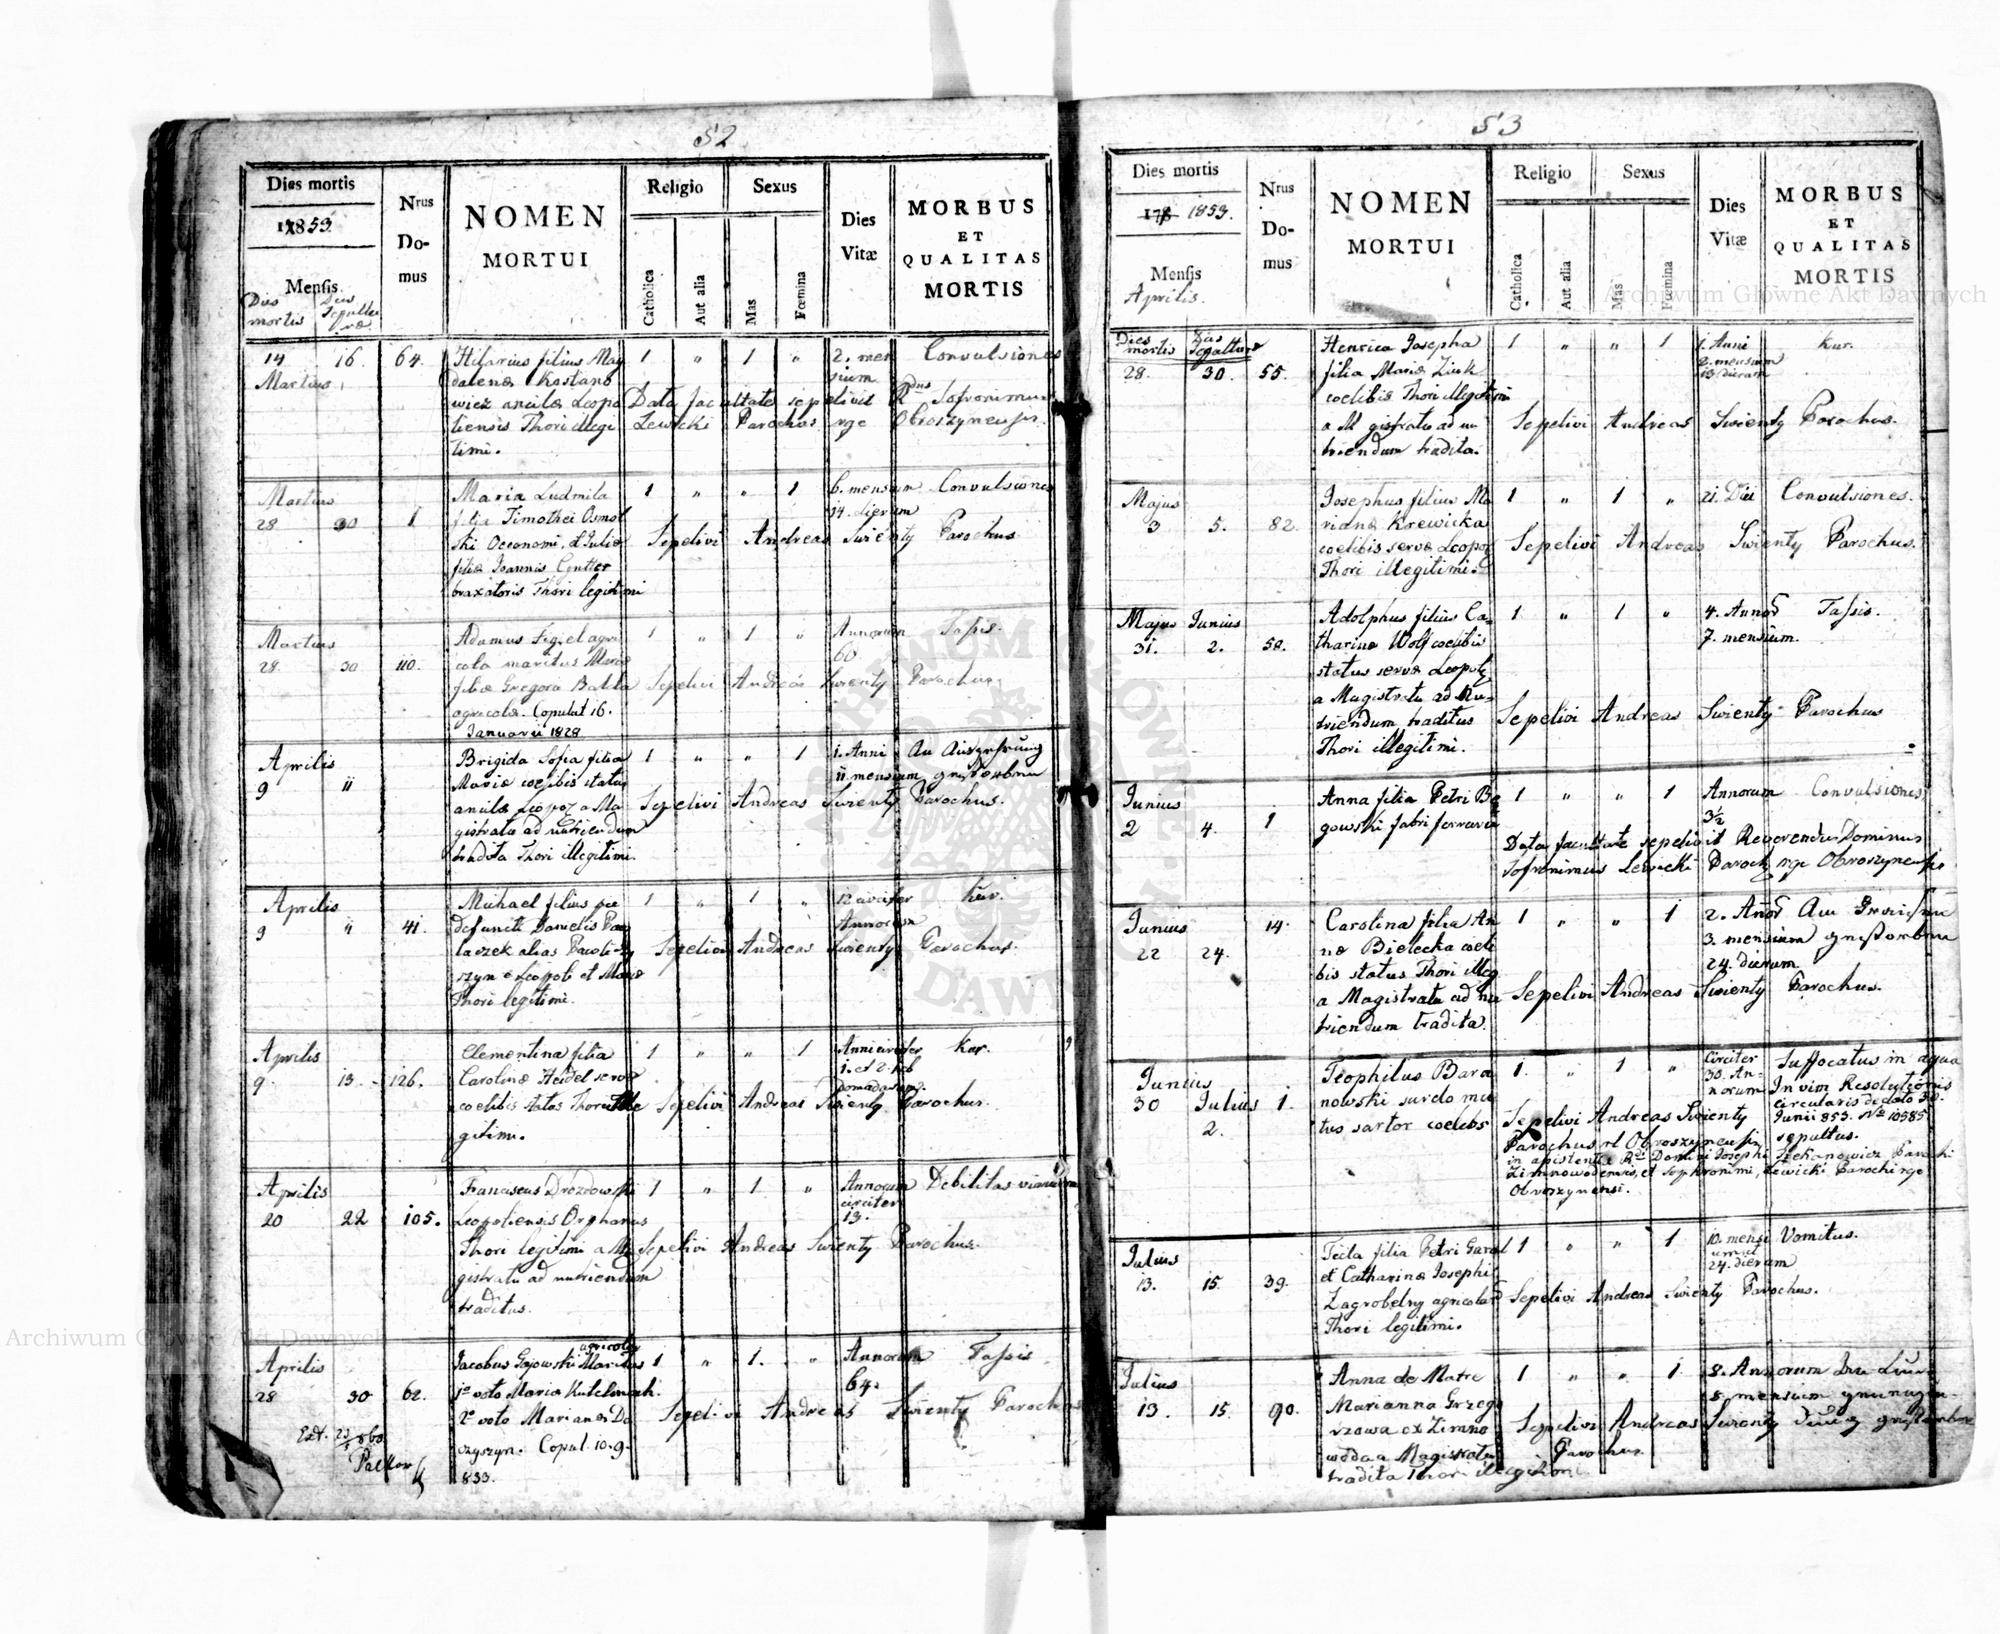 52
Dies mortis
1853.
Mensis
Dies mortis
Dies Sepultu
ræ
Nrus
Do-
mus
NOMEN
MORTUI
Religio
Catholica
Aut alia
Sexus
Mas
Fœmina
Dies
Vitæ
MORBUS
ET
QUALITAS
MORTIS
14 16 64. Hilarius filius Mag 1 " 1 " 2. men Convulsiones
Martius dalenæ sium
wicz ancilæ Leopo Data facultate sepelivit Rdus Sofronimus
liensis Thori illegi Lewicki Parochus rgc Obroszynensis.
timi.
Martius Maria Ludmila 1 " " 1 6. mensium Convulsiones
28 30 1 filia Timothei Osmol 14. dierum
ski Oeconomi, et Juliæ Sepelivi Andreas Swienty Parochus
filiæ Joannis
braxatoris Thori legitimi
Martius Adamus Figiel agri 1 " 1 " Annorum Tassis.
28. 30 110. cola maritus Mariæ 60
filiæ Gregorii Balila Sepelivi Andreas Swienty Parochus.
agricolæ. Copulat 16.
Januarii 1828
Aprilis Brigida Sofia filia 1 " " 1 1. Anni An
9 11 Mariæ coelibis status 11. mensium
ancilæ Leopoz a Ma Sepelivi Andreas Swienty Parochus.
gistratu ad nutriendum
tradita Thori illegitimi.
Aprilis Michael filius præ 1 " 1 " 12 circiter
9 11 41. defuncti Danielis Pau Annorum
laczek alias Sepelivi Andreas Swienty Parochus.
szyn e Leopoli et Mariæ
Thori legitimi.
Aprilis Clementina filia 1 " " 1 Anni circiter Kur.
9. 13. 126. Carolinæ Heidel servæ 1. et 2. heb
coelibis status Thori Ille Sepelivi Andreas Swienty Parochus.
gitimi.
Aprilis Franciscus Drozdowski 1 " 1 " Annorum Debilitas
20 22 105. Leopoliensis Orphanus circiter
Thori legitimi a Ma Sepelivi Andreas Swienty Parochus. 13.
gistratu ad nutriendum
traditus.
Aprilis Jacobus Gajowski agricola Maritus 1 " 1. " Annorum Tassis
28 30 62. 1o voto Maria 64.
2o voto Marianæ Do Sepelivi Andreas Swienty Parochus
szyszyn. Copul. 10. 9.
833.
53
Dies mortis
1853.
Mensis
Aprilis.
Nrus
Do-
mus
NOMEN
MORTUI
Religio
Catholica
Aut alia
Sexus
Mas
Fœmina
Dies
Vitæ
MORBUS
ET
QUALITAS
MORTIS
Dies mortis Dies Sepulturæ Henrica Josepha 1 " " 1 1. Anni Kur.
28. 30. 55. filia Mariæ Zink 2. mensium
coelibis Thori illegitimi 13 dierum
a Magistratu ad nu Sepelivi Andreas Swienty Parochus.
triendum tradita.
Majus Josephus filius Ma 1 " 1 " 21. Diei Convulsiones.
3 5. 82. rianæ Krewicka
coelibis servæ Leopoz Sepelivi Andreas Swienty Parochus.
Thori illegitimi.
Majus Junius Adolphus filius Ca- 1 " 1 " 4. Annor Tassis.
31. 2. 58. tharinæ Wolf coelibis 7. mensium.
status servæ Leopoz
a Magistratu ad Nu-
triendum traditus Sepelivi Andreas Swienty Parochus
Thori illegitimi.
Junius Anna filia Petri Be 1 " " 1 Annorum Convulsiones
2 4. 1 gowski fabri ferrarii 3½
Data facultate sepelivit Reverendus Dominus
Sofronimus Lewicki Paroch rgc Obroszynensis
Junius 14. Carolina filia An 1 " " 1 2. Annor
22 24. næ Bielecka coeli 3. mensium
bis status Thori illeg 24. dierum
a Magistratu ad nu Sepelivi Andreas Swienty Parochus.
triendum tradita.
Junius Teophilus Bara 1. " 1 " Circiter Suffocatus in aqua
30 Julius 1. nowski surdo mu 30. An- In vim Resolutionis
2. tus sartor coelebs norum circularis de dato 30.
Sepelivi Andreas Swienty Junii 853. No 10585
Parochus rl Obroszynensis sepultus.
in assistentia Rdi Domini Josephi Parochi
Zimnowodensis, et Sophronimi Lewicki Parochi rgc
Obroszynensi.
Julius Tecla filia Petri Garal 1 " " 1 10. mensi Vomitus.
13. 15. 39. et Catharinæ Josephi um et
Zagrobelny agricolar Sepelivi Andreas Swienty Parochus. 24. dierum
Thori legitimi.
Julius Anna de Matre 1 " " 1 8. Annorum
13. 15. 90. Marianna Grzego 8. mensium
rzowa ex Zimno Sepelivi Andreas Swienty
woda a Magistratu Parochus.
tradita Thori illegitimi
Archiwum Główne Akt Dawnych
Archiwum Główne Akt Dawnych